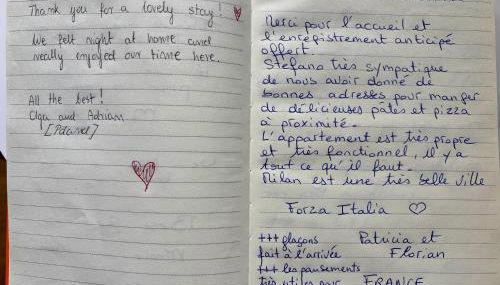 Thank you for a lovely stay!
We felt right at home and
really enjoyed our time here.
All the best!
Olga and Adrian
[Poland]
Merci pour l'accueil et
l'enregistrement anticipé
offert.
Stefano très sympatique
de nous avoir donné de
bonnes adresses pour manger
de délicieuses pâtes et pizza
à proximité.
L'appartement est très propre
et très fonctionnel, il y a
tout ce qu'il faut.
Milan est une très belle ville
Forza Italia ♡
+++ glaçons Patricia et
fait à l'arrivée Florian
+++ les pansements
très utiles pour FRANCE